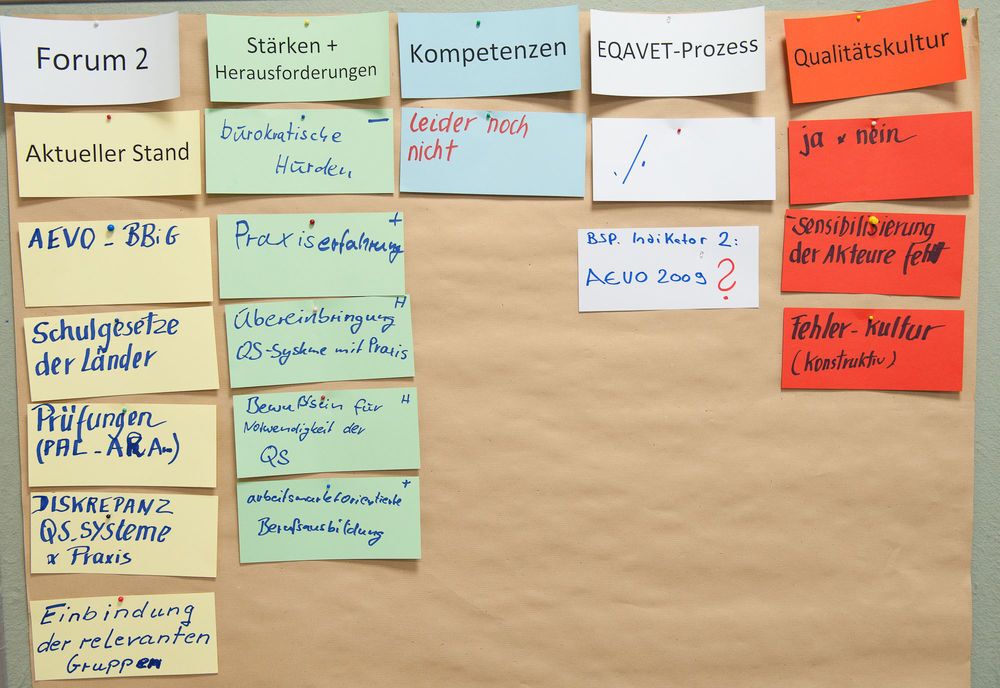 Forum 2
Aktueller Stand
AEVO - BBiG
Schulgesetze
der Länder
Prüfungen
(PAL - ARA...)
DISKREPANZ
QS-Systeme
x Praxis
Einbindung
der relevanten
Gruppen
Stärken +
Herausforderungen
bürokratische —
Hürden
Praxiserfahrung +
Übereinbringung H
QS-Systeme mit Praxis
Bewußtsein für H
Notwendigkeit der
QS
arbeitsmarktorientierte +
Berufsausbildung
Kompetenzen
leider noch
nicht
EQAVET-Prozess
./.
BSP. Indikator 2:
AEVO 2009 ?
Qualitätskultur
ja x nein
-Sensibilisierung
der Akteure fehlt
Fehler-Kultur
(konstruktiv)